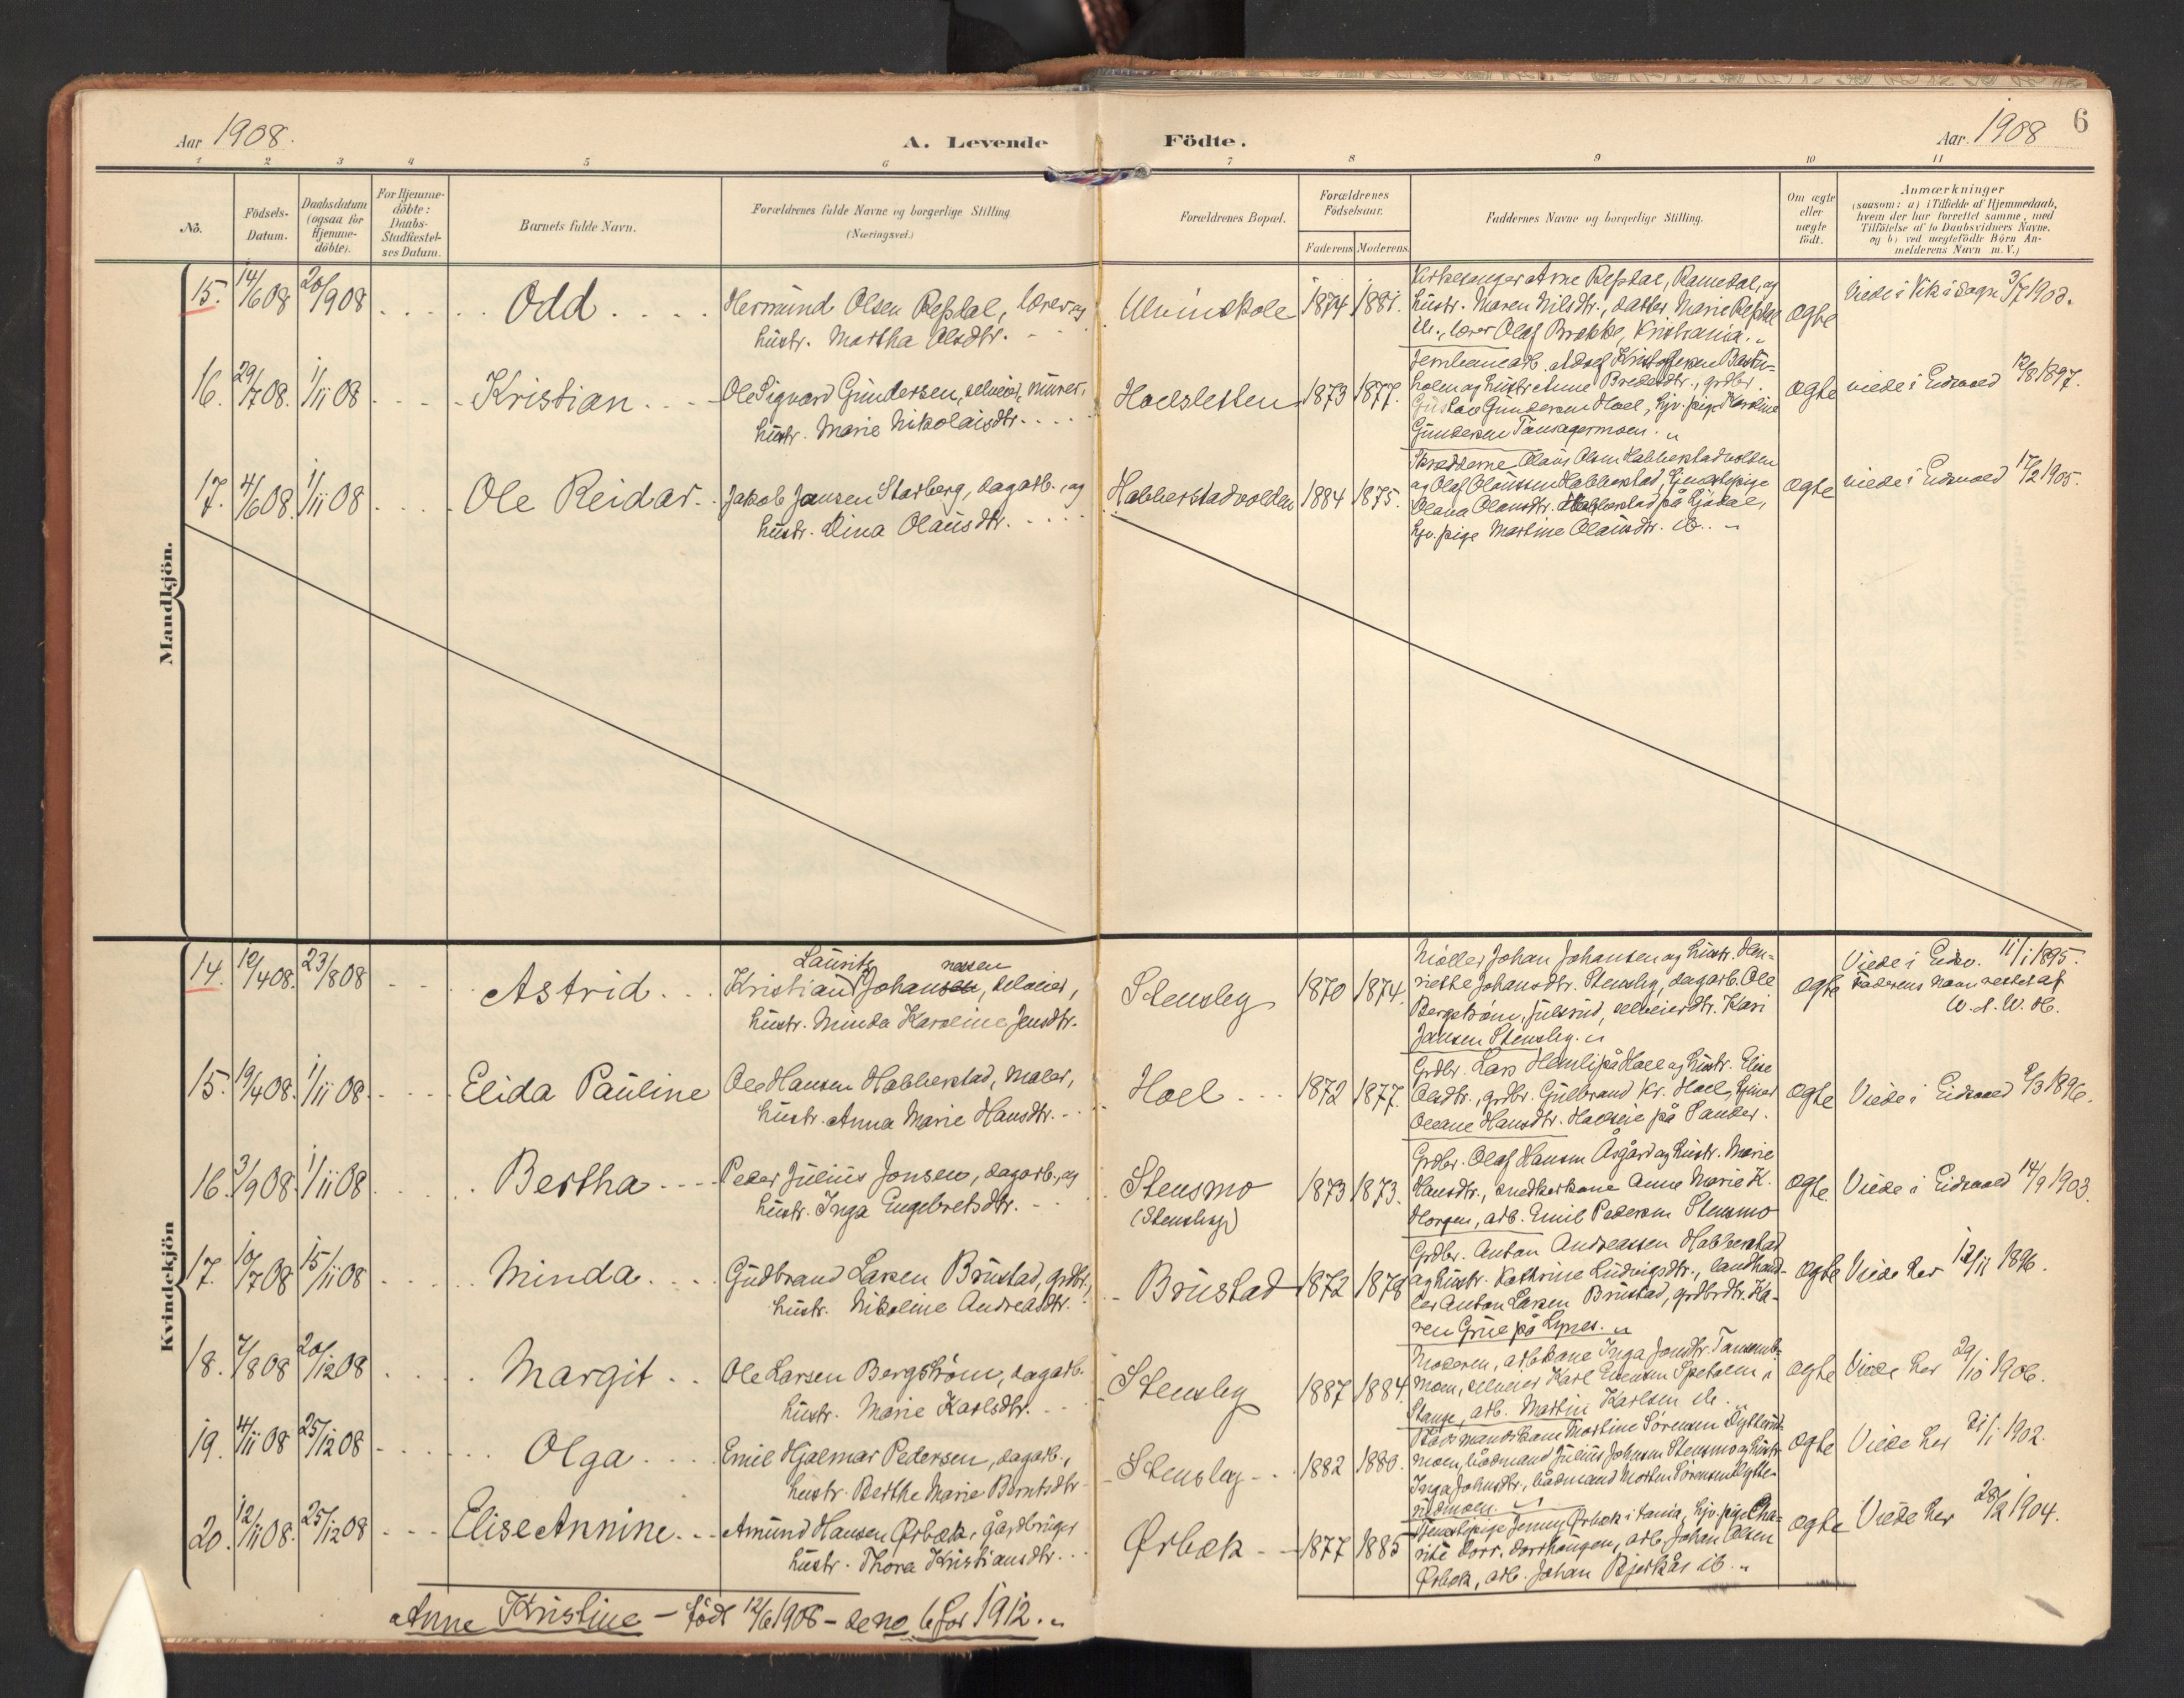 Aar 1908.
A. Levende Födte.
Aar. 1908
6
1 2 3 4 5 6 7 8 9 10 11
No.
Födsels-Datum.
Daabsdatum (ogsaa for Hjemme-döbte).
For Hjemme-döbte: Daabs-Stadfæstel-ses Datum.
Barnets fulde Navn.
Forældrenes fulde Navne og borgerlige Stilling
(Næringsvei.)
Forældrenes Bopæl.
Forældrenes Födselsaar.
Faderens Moderens
Faddernes Navne og borgerlige Stilling.
Om ægte eller uægte födt.
Anmærkninger
(saasom: a) i Tilfælde af Hjemmedaab,
hvem der har forrettet samme, med
Tilföielse af to Daabsvidners Navne.
og b) ved uægtefödte Börn An-
melderens Navn m. V.)
Mandkjön.
15. 14/6 08 20/9 08 Odd Hermund Olsen Refsdal, lærer og
hustr. Martha Olsdtr.
Ulvinskole 1874 1881.
Kirkesanger Arne Refsdal, Ramedal, og
hustr. Maren Nilsdtr., datter Marie Refsdal
ib., lærer Olaf Brække, Kristiania.
ægte
Viede i Vik i Sogn 3/7 1903.
16. 29/7 08. 1/11 08 Kristian Ole Sigvard Gundersen, selveier, murer,
hustr. Marie Nikolaisdtr.
Hoelsletten 1873 1877.
Jernbanearb. Adolf Kristoffersen Bastu-
holen og hustr. Anne Bredesdtr., grdbr.
Gustav Gundersen Hoel, hjv. pige Karoline
Gundersen
ægte
viede i Eidsvold 12/8 1897.
17. 4/6 08. 1/11 08 Ole Reidar. Jakob Jansen Starberg, dagarb., og
hustr. Dina Olausdtr.
Habberstadvolden 1884 1875.
Skrædderne Olaus Olsen Habberstadvolden
og Olaf Olaussen Habberstad, tjenestepige
Olava Olausdtr. Habberstad på
hjv. pige Martine Olausdtr. ib.
ægte
viede i Eidsvold 17/2 1905.
Kvindekjön
14. 12/4 08. 23/8 08 Astrid Lauritz nessen
Kristian Johansen, selveier,
hustr. Minda Karoline Jensdtr.
Stensby 1870 1874.
Møller Johan Johansen og hustr. Hen-
riette Johansdtr. Stensby, dagarb. Ole
Bergstrøm, Julsrud, selveierdtr. Kari
Jansen Stensby.
ægte
Viede i Eidsv. 11/1 1895.
Faderens navn rettet af
15. 19/4 08. 1/11 08 Elida Pauline Ole Hansen Habberstad, maler,
hustr. Anna Marie Hansdtr.
Hoel 1872 1877.
Grdbr. Lars Hemli på Hoel og hustr. Elise
Olsdtr., grdbr. Gulbrand Kr. Hoel,
Oleane Hansdtr. Hoelseie på Sander.
ægte
Viede i Eidsvold 2/3 1896.
16. 3/9 08. 1/11 08 Bertha Peder Julius Jonsen, dagarb., og
hustr. Inga Engebretsdtr.
Stensmo
(Stensby)
1873 1873.
Grdbr. Olaf Hansen Åsgård og hustr. Marie
Hansdtr., snedkerkone Anne Marie K.
Horgen, arb. Emil Pedersen Stensmo
ægte
Viede i Eidsvold 14/9 1903.
17. 10/7 08 15/11 08 Minda Gudbrand Larsen Brustad, grdbr.,
hustr. Nikoline Andreasdtr.
Brustad 1872 1878
Grdbr. Anton Andreassen Habberstad
og hustr. Kathrine Ludvigsdtr., landhand-
ler Anton Larsen Brustad, grdbrdtr. Ka-
ren Grue på Lynes.
ægte
Viede her 12/11 1896.
18. 7/8 08 20/12 08 Margit Ole Larsen Bergstrøm, dagarb.
hustr. Marie Karlsdtr.
Stensby 1887 1884.
Moderen, arb.kone Inga Jonsdtr.
moen, selveier Karl Evensen i
Stange, arb. Martin Karlsen ib.
ægte
Viede her 29/10 1906.
19. 4/11 08 25/12 08 Olga Emil Hjalmar Pedersen, dagarb.,
hustr. Berthe Marie Berntsdtr
Stensby 1882 1880.
Martine Sørensen
moen, bådmand Julius Johnsen Stensmo og hustr.
Inga Johnsdtr., bådmand Morten Sørensen Dytte-
rudmoen.
ægte
Viede her 21/1 1902.
20. 12/11 08. 25/12 08 Elise Annine Amund Hansen Ørbæk, gårdbruger
hustr. Thora Kristiansdtr.
Ørbæk 1877 1885
Tjenestepige Jenny Ørbæk i Kania, hjv. pige Cha-
rite Dorr. Dorrhaugen, arb. Johan Olsen
Ørbæk, arb. Johan Bjerkås ib.
ægte
Viede her 28/2 1904.
Anne Kristine – født 12/6 1908 – se no. 6 for 1912.